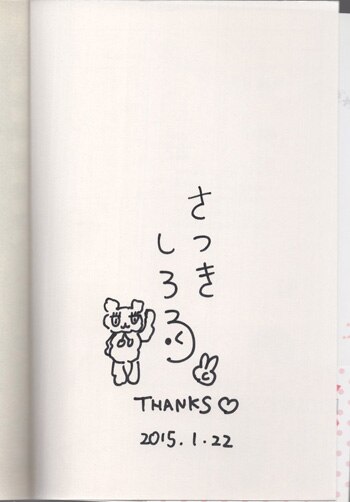 さつき
しろろ
THANKS♡
2015.1.22